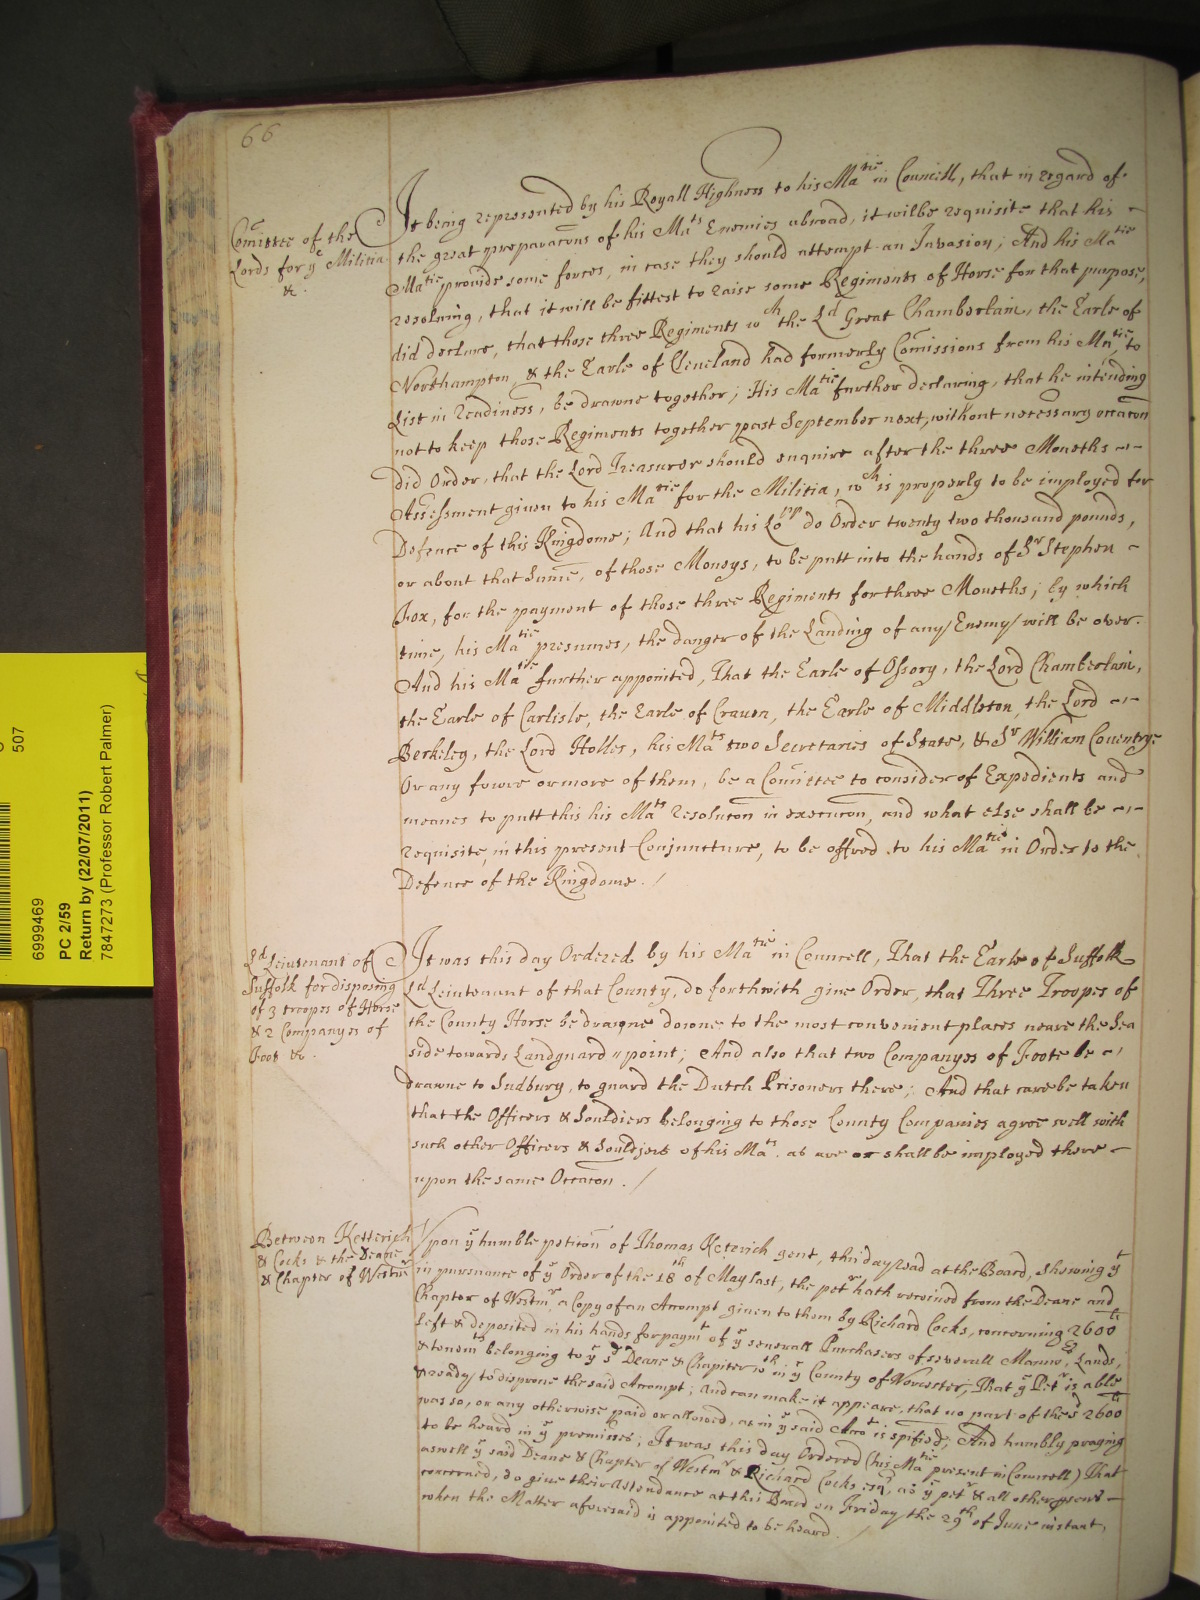 66
Comittee of the
Lords for ye Militia
&c.
It being represented by his Royall Highness to his Matie in Councill, that in regard of
the great preparacons of his Mats Enemies abroad, it wilbe requisite that his
Matie provide some forces, in case they should attempt an Invasion; And his Matie
resolving, that it will be fittest to raise some Regiments of Horse for that purpose,
did declare, that those three Regiments wch the Ld Great Chamberlain, the Earle of
Northampton, & the Earle of Cleveland had formerly Comissions from his Matie, to
List in readiness, be drawne together; His Matie further declaring, that he intending
not to keep those Regiments together past September next, without necessary occacon
did Order, that the Lord Treasurer should enquire after the three Moneths
Assessment given to his Matie for the Militia, wch is properly to be imployed for
Defence of this Kingdome; And that his Lopp do Order twenty two thousand pounds,
or about that Sume, of those Moneys, to be putt into the hands of Sr Stephen
Fox, for the payment of those three Regiments for three Moneths; by which
time, his Matie presumes, the danger of the Landing of any/Enemy/will be over.
And his Matie further appointed, That the Earle of Ossory, the Lord Chamberlain,
the Earle of Carlisle, the Earle of Craven, the Earle of Middleton, the Lord
Berkeley, the Lord Holles, his Mats two Secretaries of State, & Sr William Coventrye
Or any fowre or more of them, be a Comittee to consider of Expedients and
meanes to putt this his Mats Resolucon in execucon, and what else shall be
requisite, in this present Conjuncture, to be offred to his Matie in Order to the
Defence of the Kingdome. /
Ld Leiutenant of
Suffolk for disposing
of 3 troopes of Horse
& 2 Companyes of
Foot &c.
It was this day Ordered by his Matie in Councell, That the Earle of Suffolk
Ld Leiutenant of that County, do forthwith give Order, that Three Troopes of
the County Horse be drawne downe to the most convenient places neare the Sea
side towards Landguard=point; And also that two Companyes of Foote be
drawne to Sudbury, to guard the Dutch Prisoners there; And that care be taken
that the Officers & Souldiers belonging to those County Companies agree well with
such other Officers & Souldjers of his Mats. as are or shall be imployed there
upon the same Occacon. /
Between Ketterich
& Cocks & the Deane
& Chapter of Westmr
Upon ye humble peticon of Thomas Keterich gent, this day read at the Board, shewing yt
in pursuance of ye Order of the 18th of May last, the petr hath received from the Deane and
Chapter of Westmr a Copy of an Accompt given to them by Richard Cocks, concerning 2600li
left & deposited in his hands for paymt of ye severall Purchasers of severall Mannors, Lands,
& tenemts belonging to ye sd Deane & Chapiter wth in ye County of Worcester, That ye Petr is able
& ready to disprove the said Accompt; and can make it appeare, that no part of the sd 2600li
was so, or any otherwise paid or allowed, as in ye said Accot is spified; And humbly praying
to be heard in ye premisses; It was this day Ordered (his Matie present in Councell) That
aswell ye said Deane & Chapter of Westmr & Richard Cocks esqr, as ye petr & all other psons
concerned, do give their Attendance at this Board on Friday the 29th of June instant,
when the Matter aforesaid is appointed to be heard. /
507
6999469
PC 2/59
Return by (22/07/2011)
7847273 (Professor Robert Palmer)